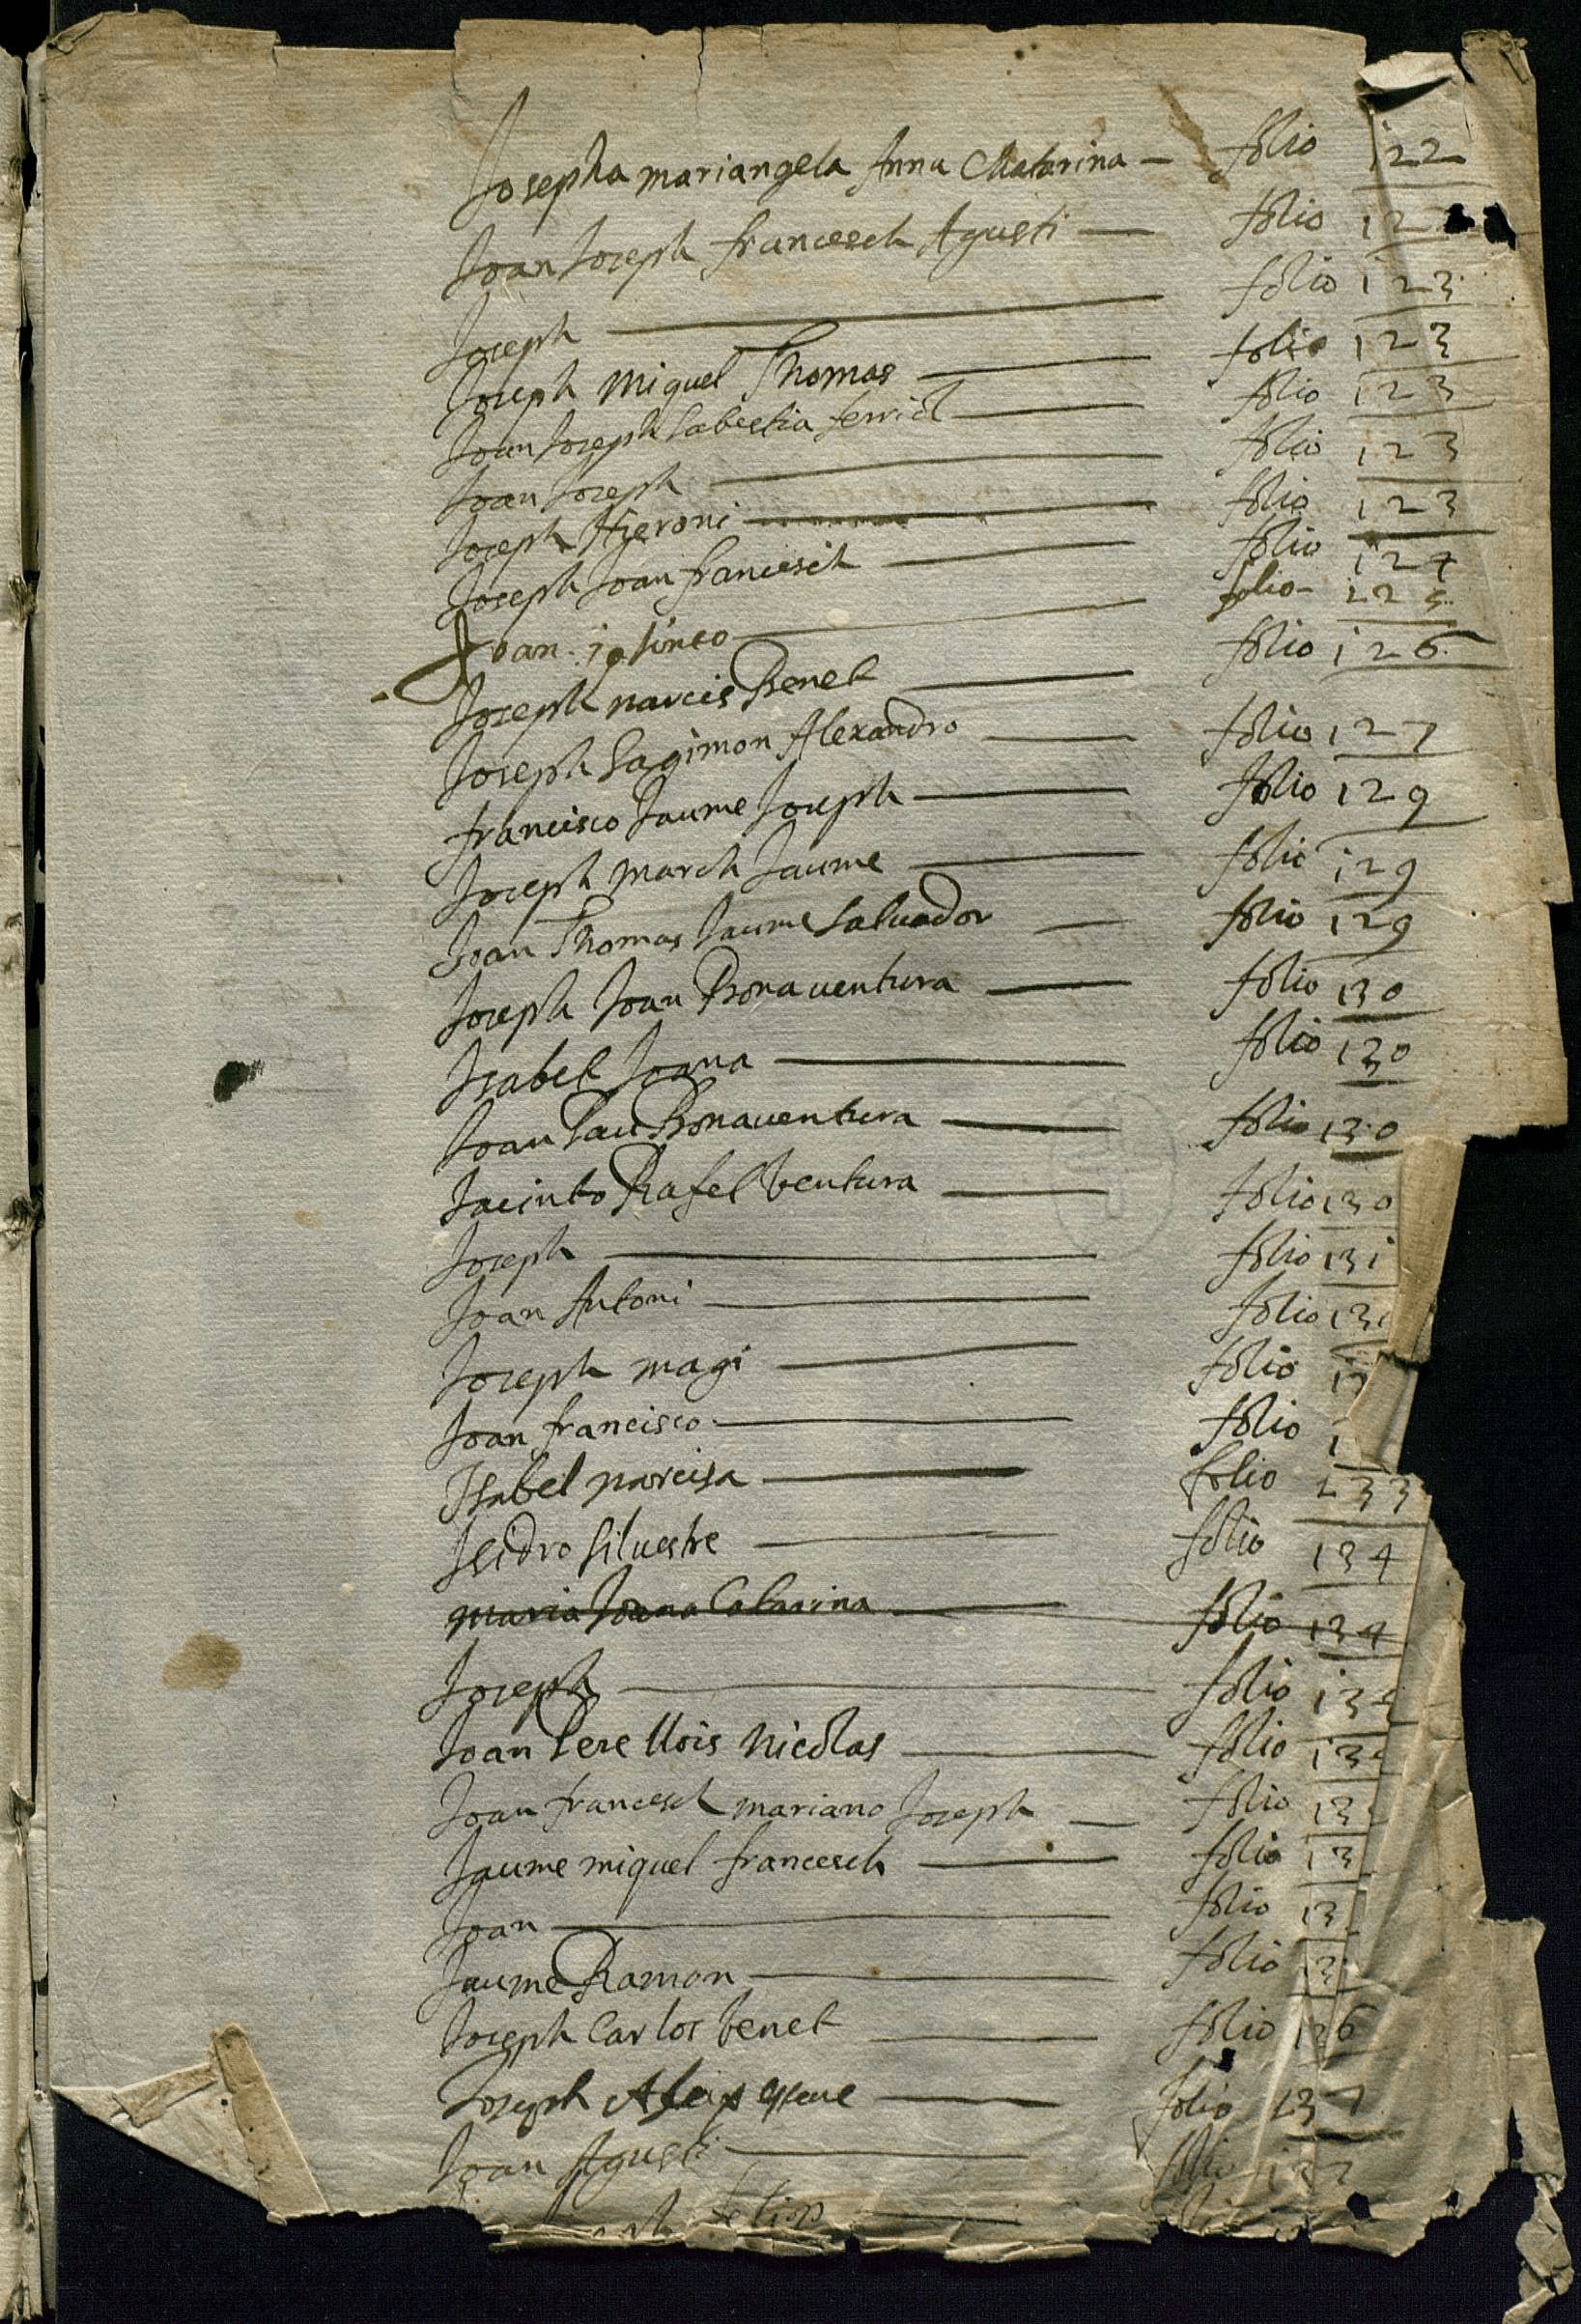 Josepha mariangela Anna Chatarina — folio 122
Joan Joseph francesch Agusti — folio 12
Joseph — folio 123
Joseph Miguel Thomas — folio 123
Joan Joseph Sabestia ferriol — folio 123
Joan Joseph — folio 123
Joseph Hieroni — folio 123
Joseph Joan francesch — folio 124
Joan — folio 125
Joseph narcis Benet — folio 126
Joseph Sagimon Alexandro — folio 127
francisco Jaume Joseph — folio 129
Joseph march Jaume — folio 129
Joan Thomas Jaume Salvador — folio 129
Joseph Joan Bonaventura — folio 130
Isabel Joana — folio 130
Joan Pau Bonaventura — folio 130
Jacinto Rafel Ventura — folio 130
Joseph — folio 131
Joan Antoni — folio 131
Joseph magi — folio
Joan francisco — folio
Isabel narcisa — folio 133
Isidro Silvestre — folio 134
maria Joana Catarina — folio 134
Joseph — folio 13
Joan Pere llois Nicolas — folio 13
Joan francesch mariano Joseph — folio 13
Jaume miquel francesch — folio 13
Joan — folio 13
Jaume Ramon — folio 13
Joseph Carlos benet — folio 136
Joseph Aleix — folio 137
Joan Agusti — folio 137
felip